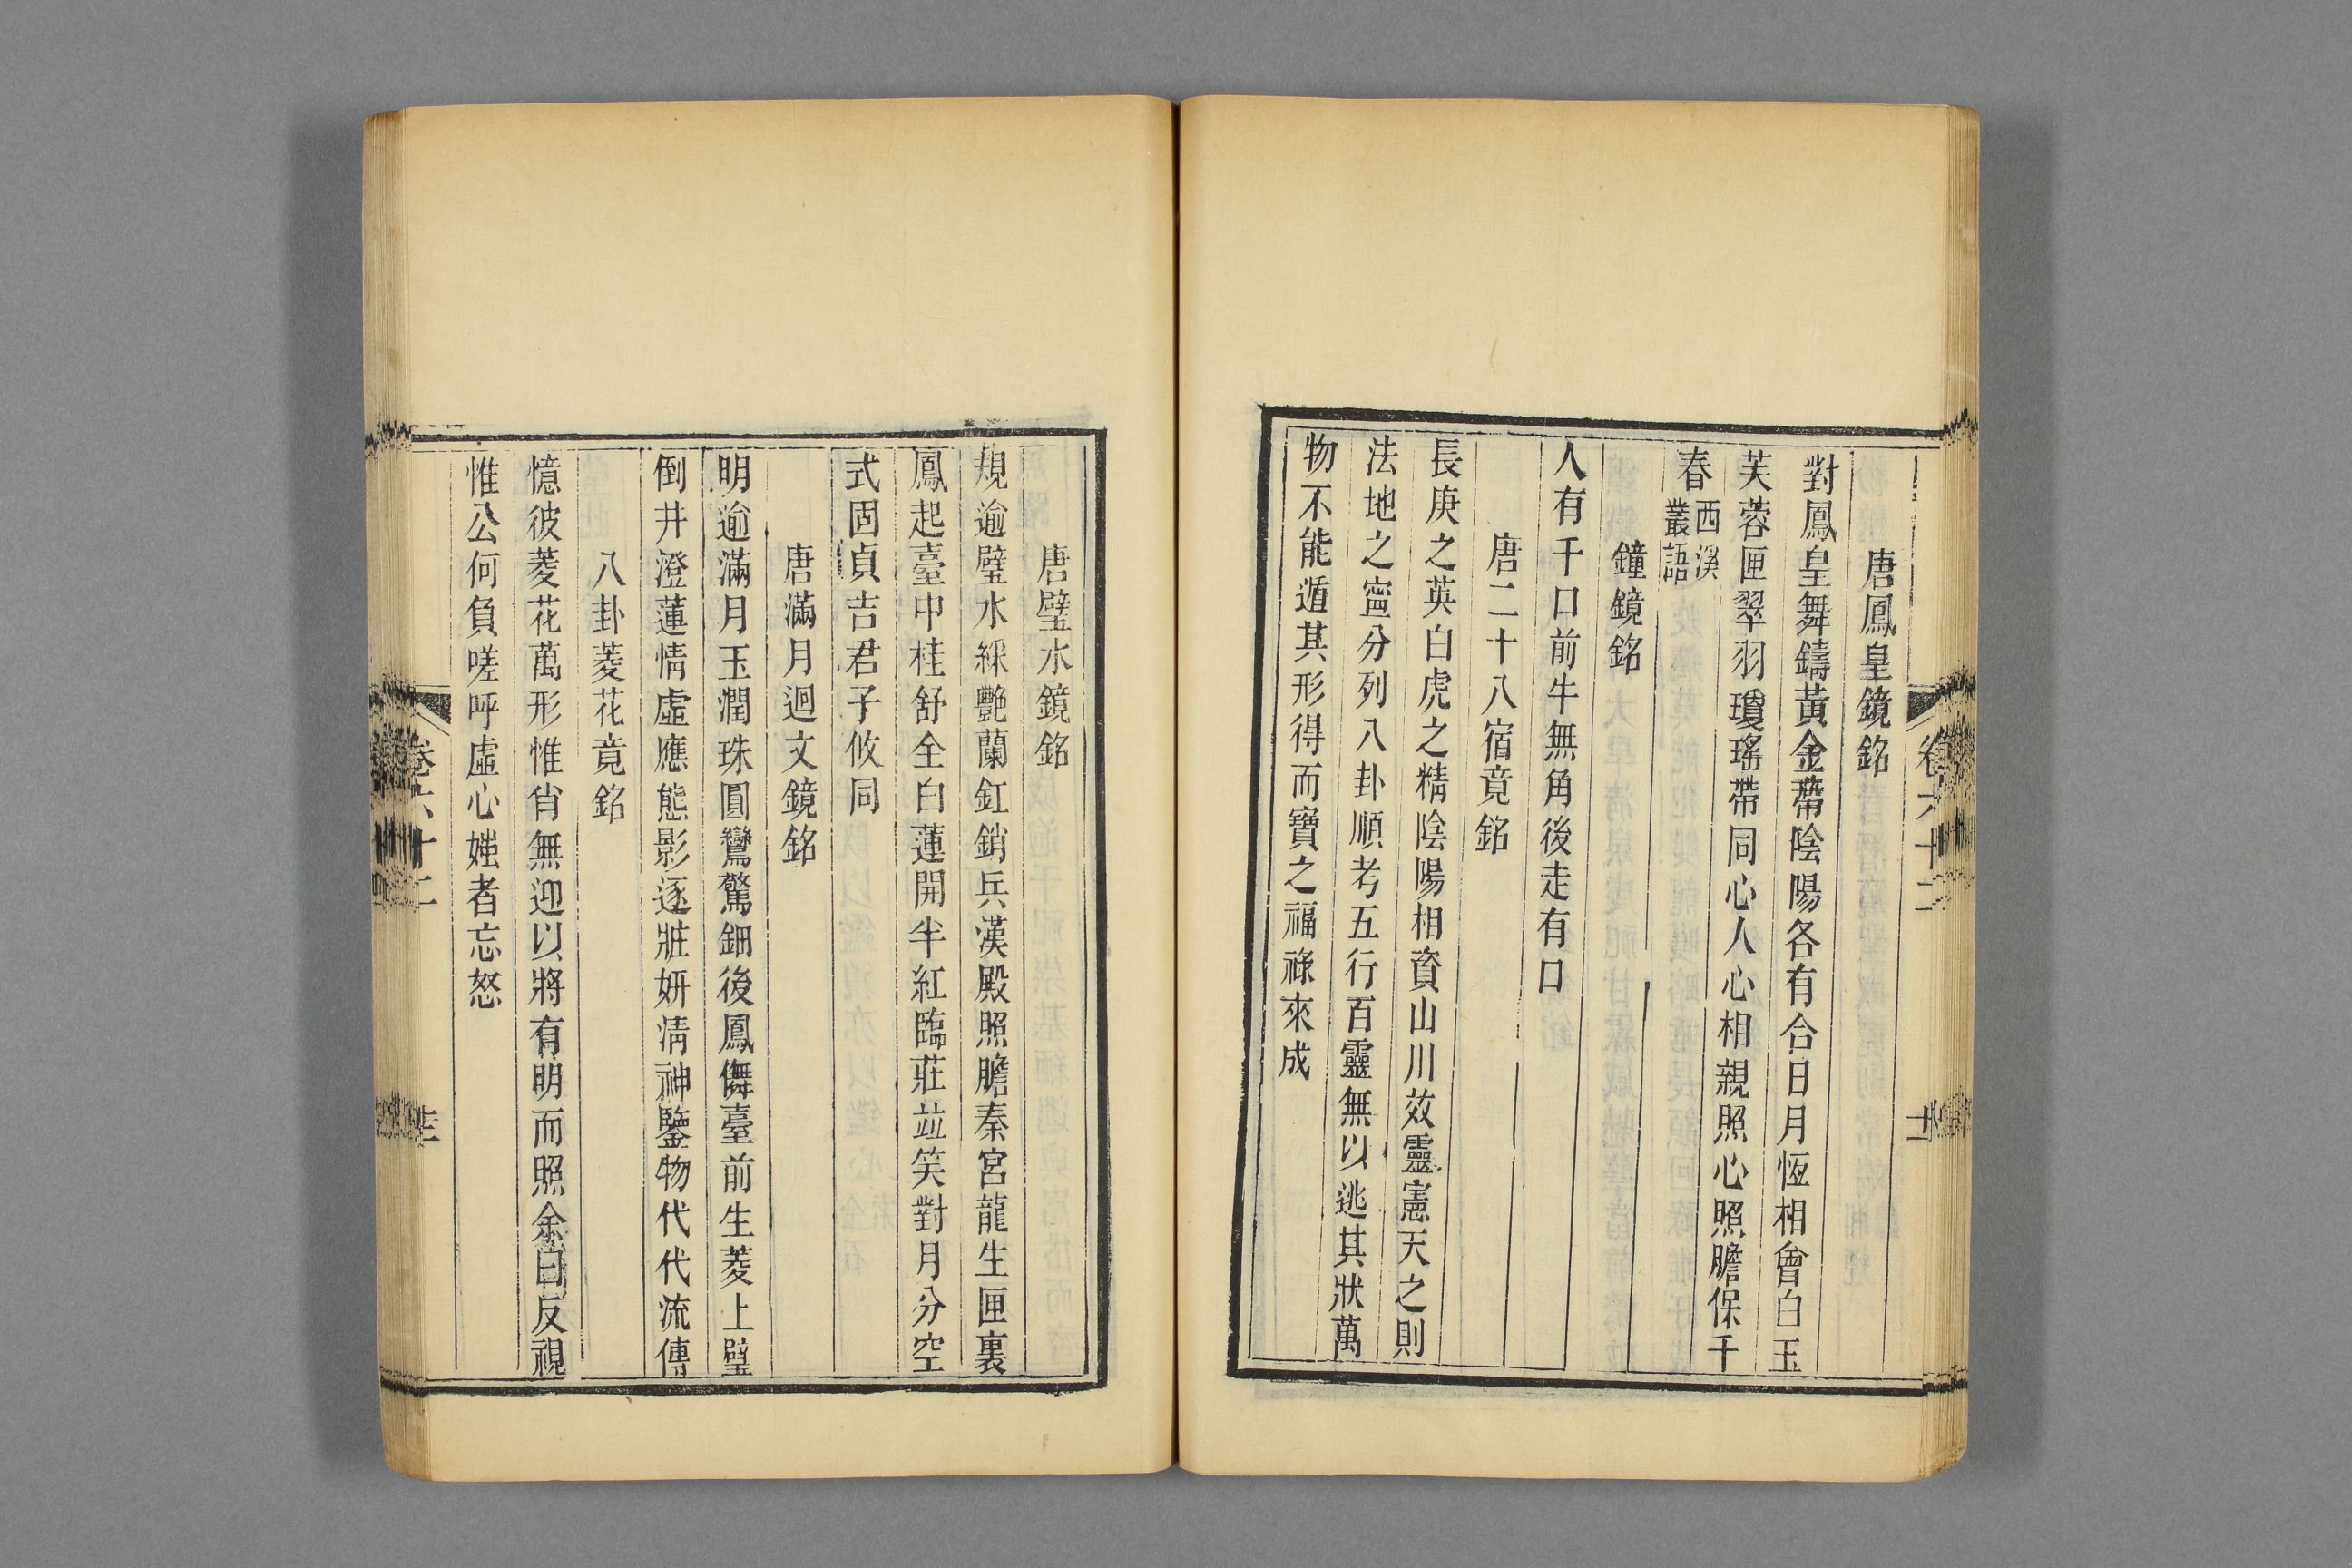 唐鳳皇鏡銘
對鳳皇舞鑄黃金蔕陰陽各有合日月恆相會白玉
芙蓉匣翠羽瓊瑤帶同心人心相親照心照膽保千
春西溪叢語
鐘鏡銘
人有千口前牛無角後走有口
唐二十八宿竟銘
長庚之英白虎之精陰陽相資山川效靈憲天之則
法地之寍分列八卦順考五行百靈無以逃其狀萬
物不能遁其形得而寶之福祿來成
唐璧水鏡銘
規逾璧水綵艷蘭釭銷兵漢殿照膽秦宮龍生匣裏
鳳起臺中桂舒全白蓮開半紅臨莊竝笑對月分空
式固貞吉君子攸同
唐滿月迴文鏡銘
明逾滿月玉潤珠圓鸞驚鈿後鳳儛臺前生菱上璧
倒井澄蓮情虛應態影逐粧妍清神鑒物代代流傳
八卦菱花竟銘
憶彼菱花萬形惟肖無迎以將有明而照余自反視
惟公何負嗟呼虛心媸者忘怒
卷六十二